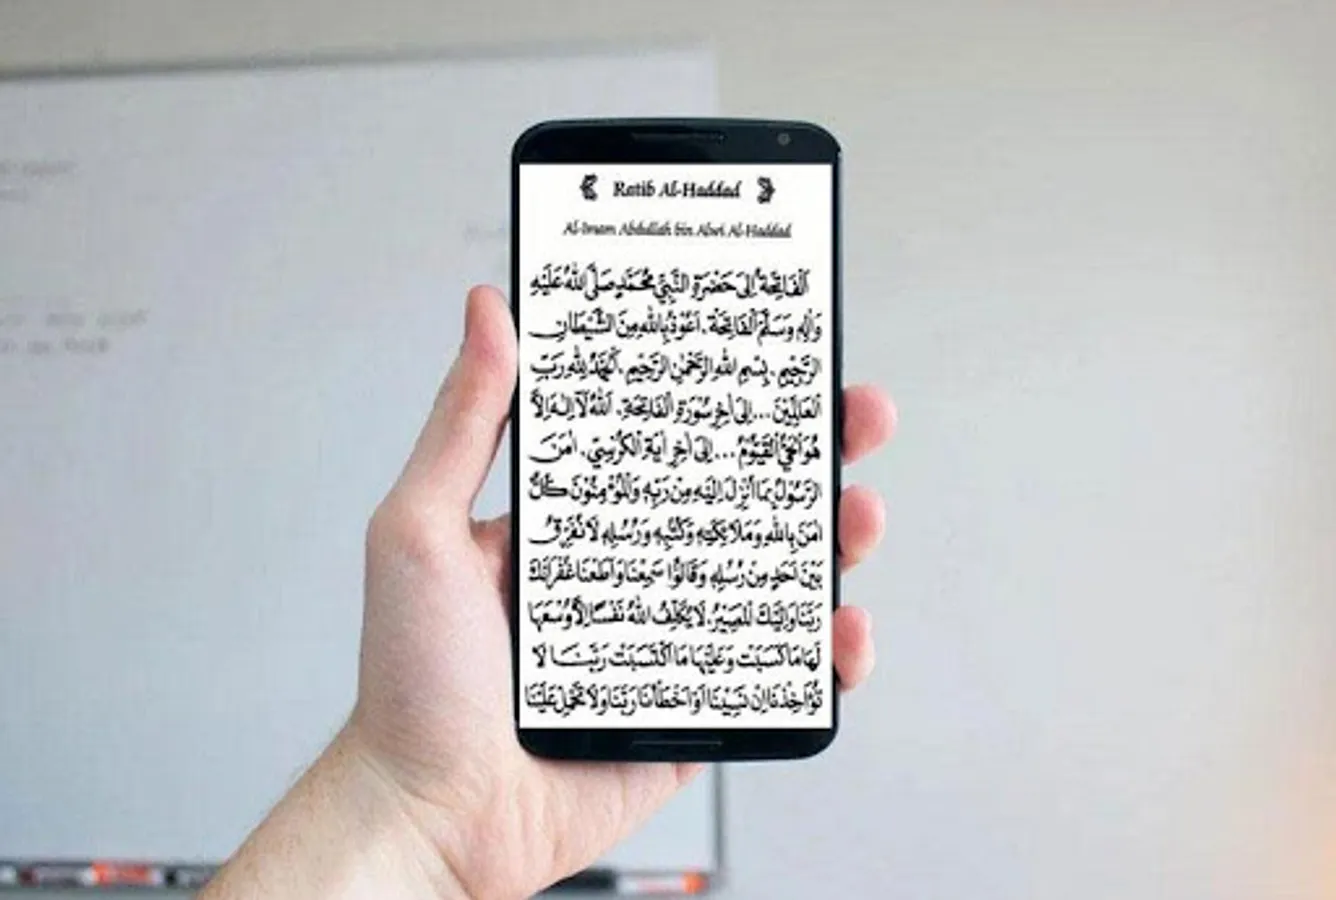 Ratib Al-Haddad
Al-Imam Abdullah bin Alwi Al-Haddad
اَلْفَاتِحَةُ اِلَى حَضْرَةِ النَّبِيِّ مُحَمَّدٍ صَلَّى اللهُ عَلَيْهِ
وَاٰلِهِ وَسَلَّمَ اَلْفَاتِحَةْ. اَعُوْذُ بِاللهِ مِنَ الشَّيْطَانِ
الرَّجِيْمِ. بِسْمِ اللهِ الرَّحْمٰنِ الرَّحِيْمِ. اَلْحَمْدُ لِلّٰهِ رَبِّ
الْعَالَمِيْنَ ... اِلَى اٰخِرِ سُوْرَةِ الْفَاتِحَةِ. اَللهُ لَآ اِلٰهَ اِلَّا
هُوَ الْحَيُّ الْقَيُّوْمُ ... اِلَى اٰخِرِ اٰيَةِ الْكُرْسِيّ. اٰمَنَ
الرَّسُوْلُ بِمَا اُنْزِلَ اِلَيْهِ مِنْ رَبِّهِ وَالْمُؤْمِنُوْنَ كُلٌّ
اٰمَنَ بِاللهِ وَمَلَائِكَتِهِ وَكُتُبِهِ وَرُسُلِهِ لَا نُفَرِّقُ
بَيْنَ اَحَدٍ مِنْ رُسُلِهِ وَقَالُوْا سَمِعْنَا وَاَطَعْنَا غُفْرَانَكَ
رَبَّنَا وَاِلَيْكَ الْمَصِيْرُ. لَا يُكَلِّفُ اللهُ نَفْسًا اِلَّا وُسْعَهَا
لَهَا مَا كَسَبَتْ وَعَلَيْهَا مَا اكْتَسَبَتْ رَبَّنَا لَا
تُؤَاخِذْنَا اِنْ نَسِيْنَا اَوْ اَخْطَأْنَا رَبَّنَا وَلَا تَحْمِلْ عَلَيْنَا